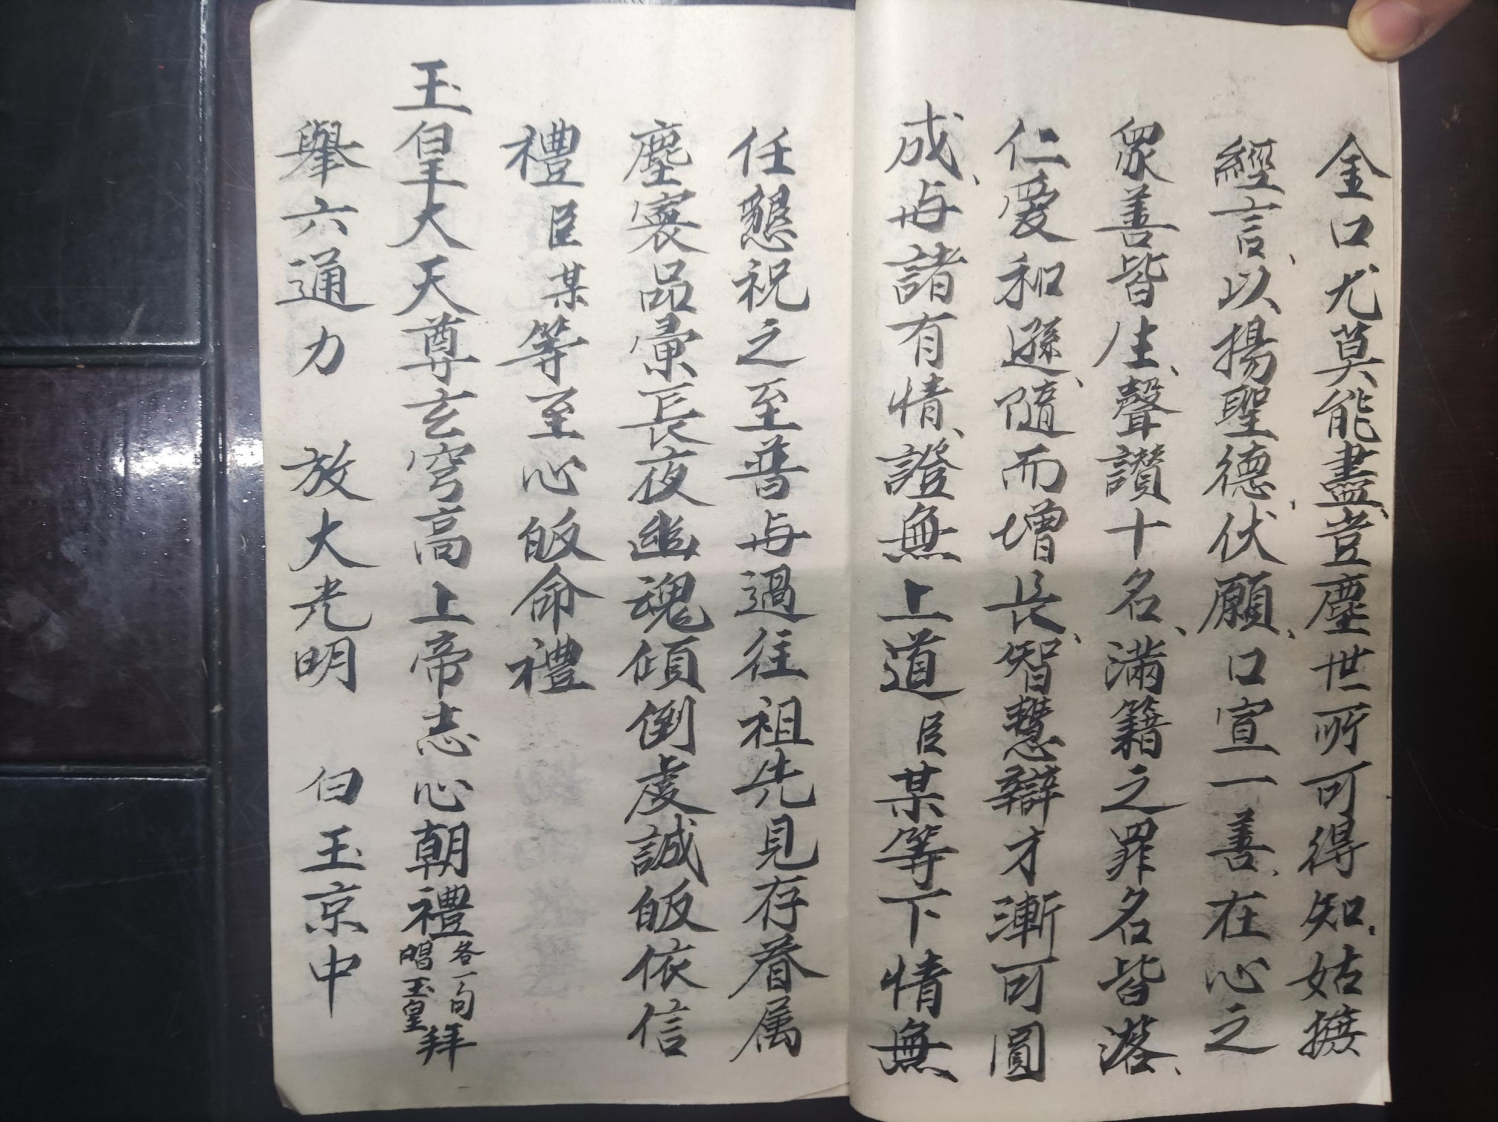 金口尤莫能盡豈塵世所可得知、姑摭
經言、以揚聖德、伏願、口宣一善、在心之
眾善皆生、聲讚十名、滿籍之罪名皆落、
仁愛和遜、隨而增長、智慧辯才漸可圓
成、与諸有情、證無上道臣某等下情無
任懇祝之至普与過往祖先見存眷属
塵寰品彚長夜幽魂傾倒虔誠皈依信
禮臣某等至心皈命禮
玉皇大天尊玄穹高上帝志心朝禮各一句唱玉皇拜
舉六通力 放大光明 白玉京中